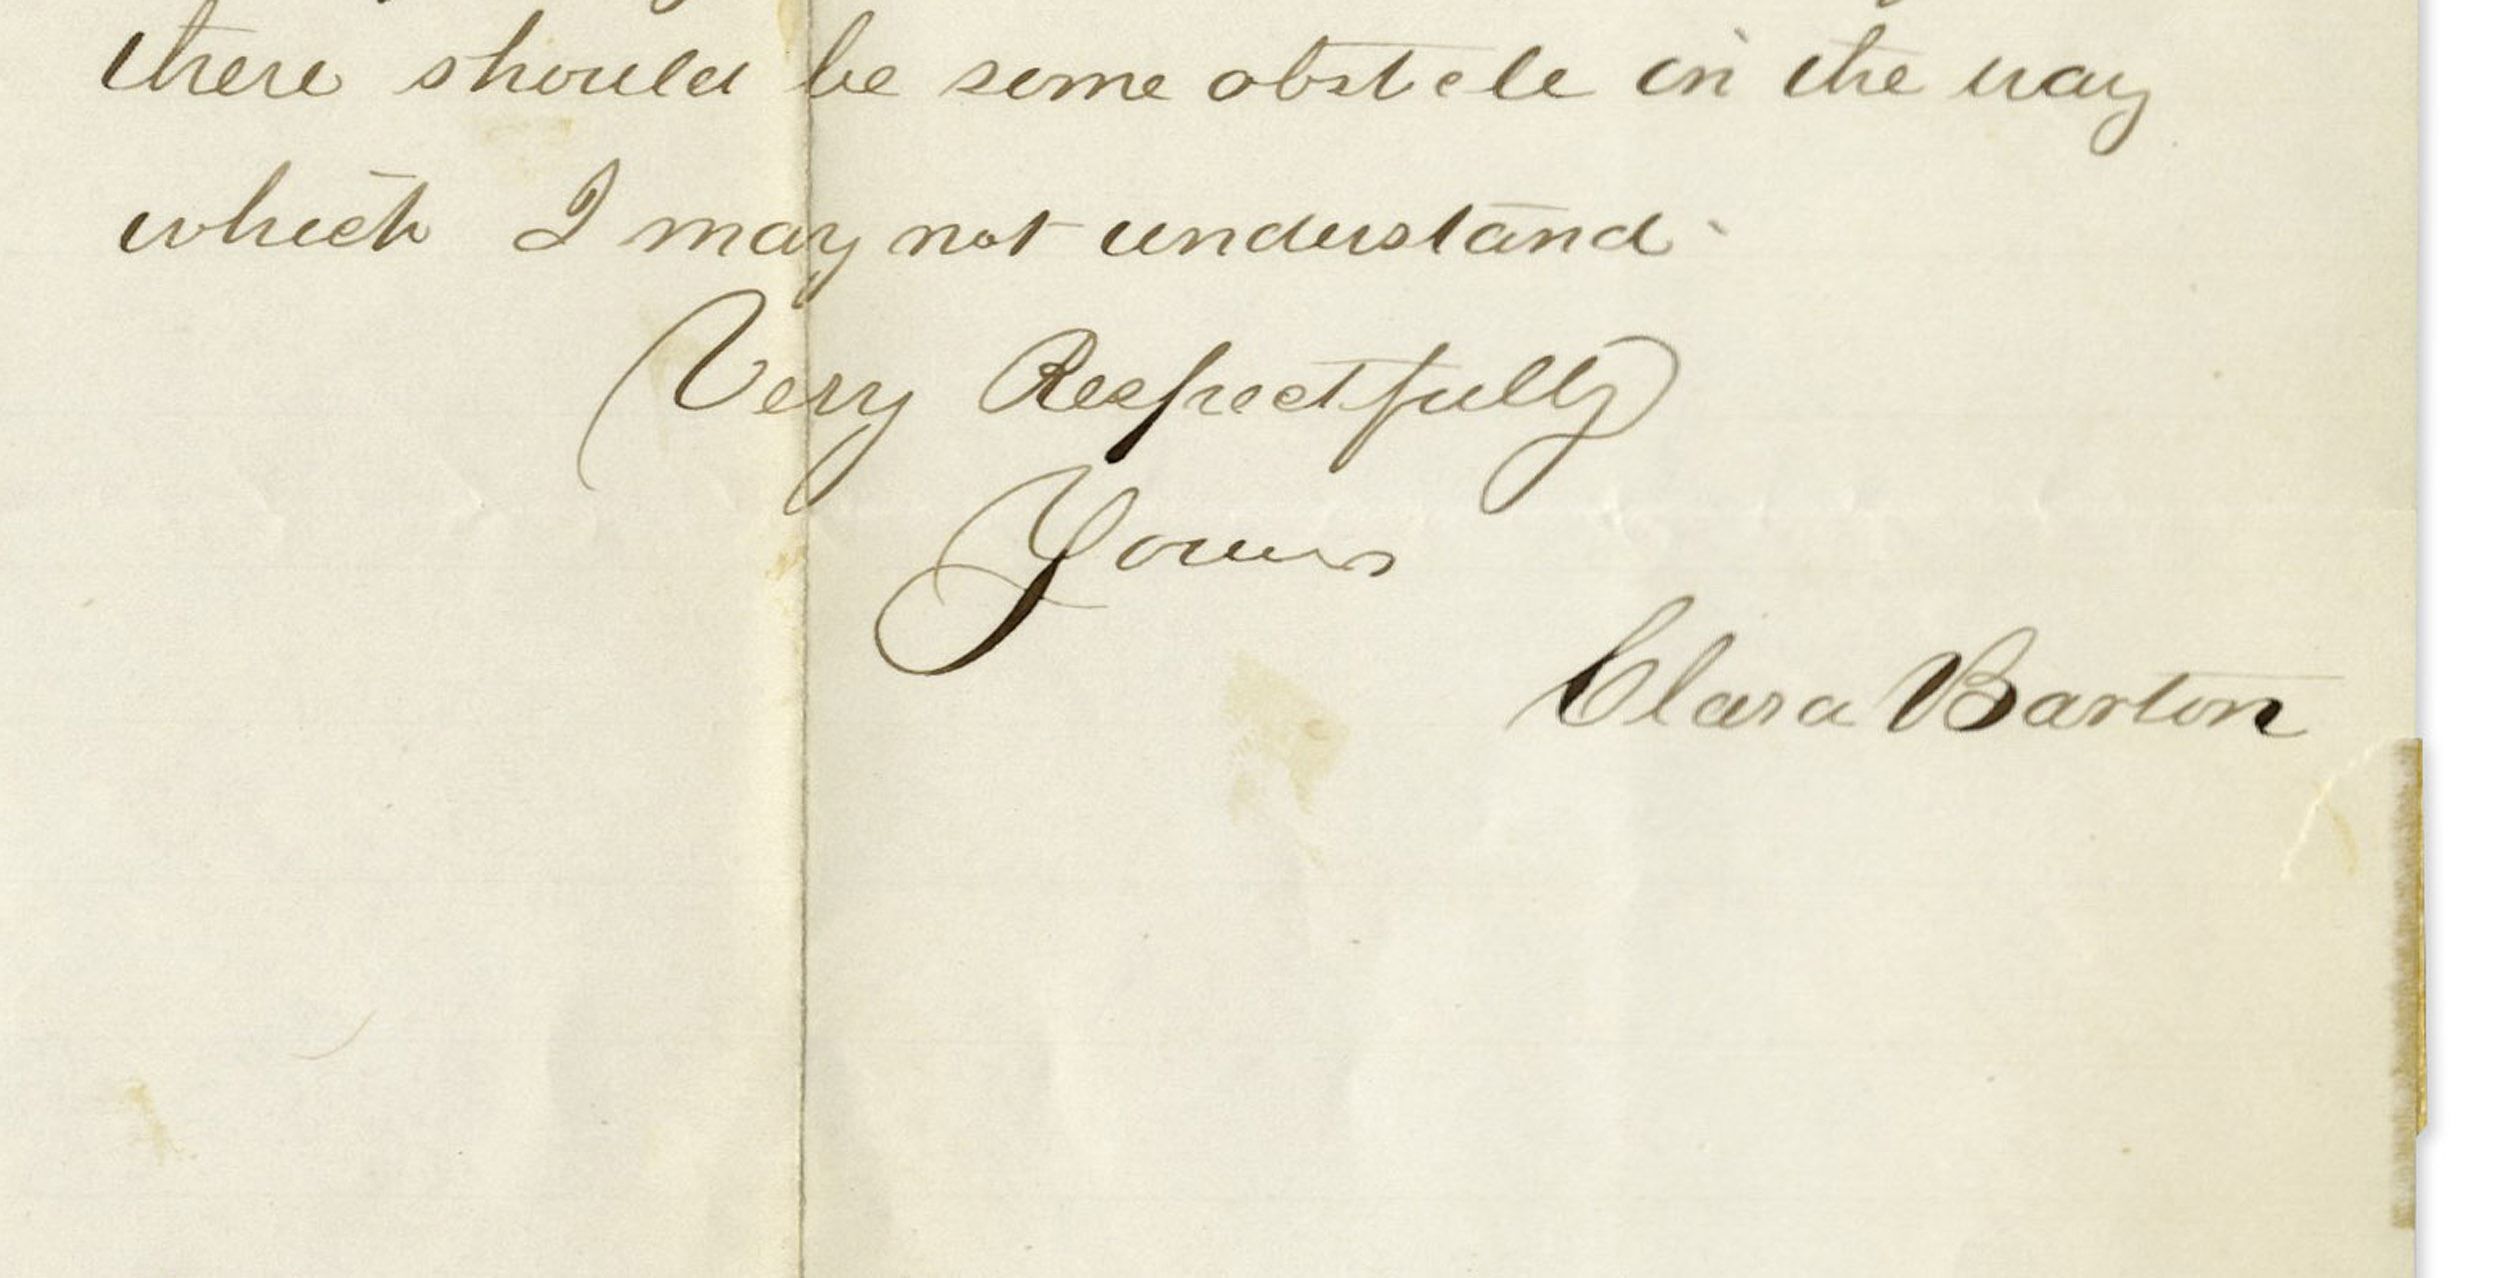 there should be some obstcle in the way
which I may not understand.
Very Respectfully
Yours
Clara Barton